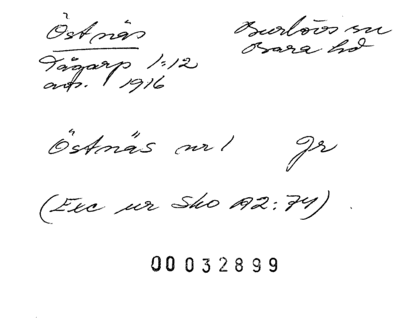 Östnäs
Burlövs sn
Bara hd
Tågarp 1:12
avs. 1916
Östnäs nr 1 Jr
(Exc ur Sko A2:74).
00032899